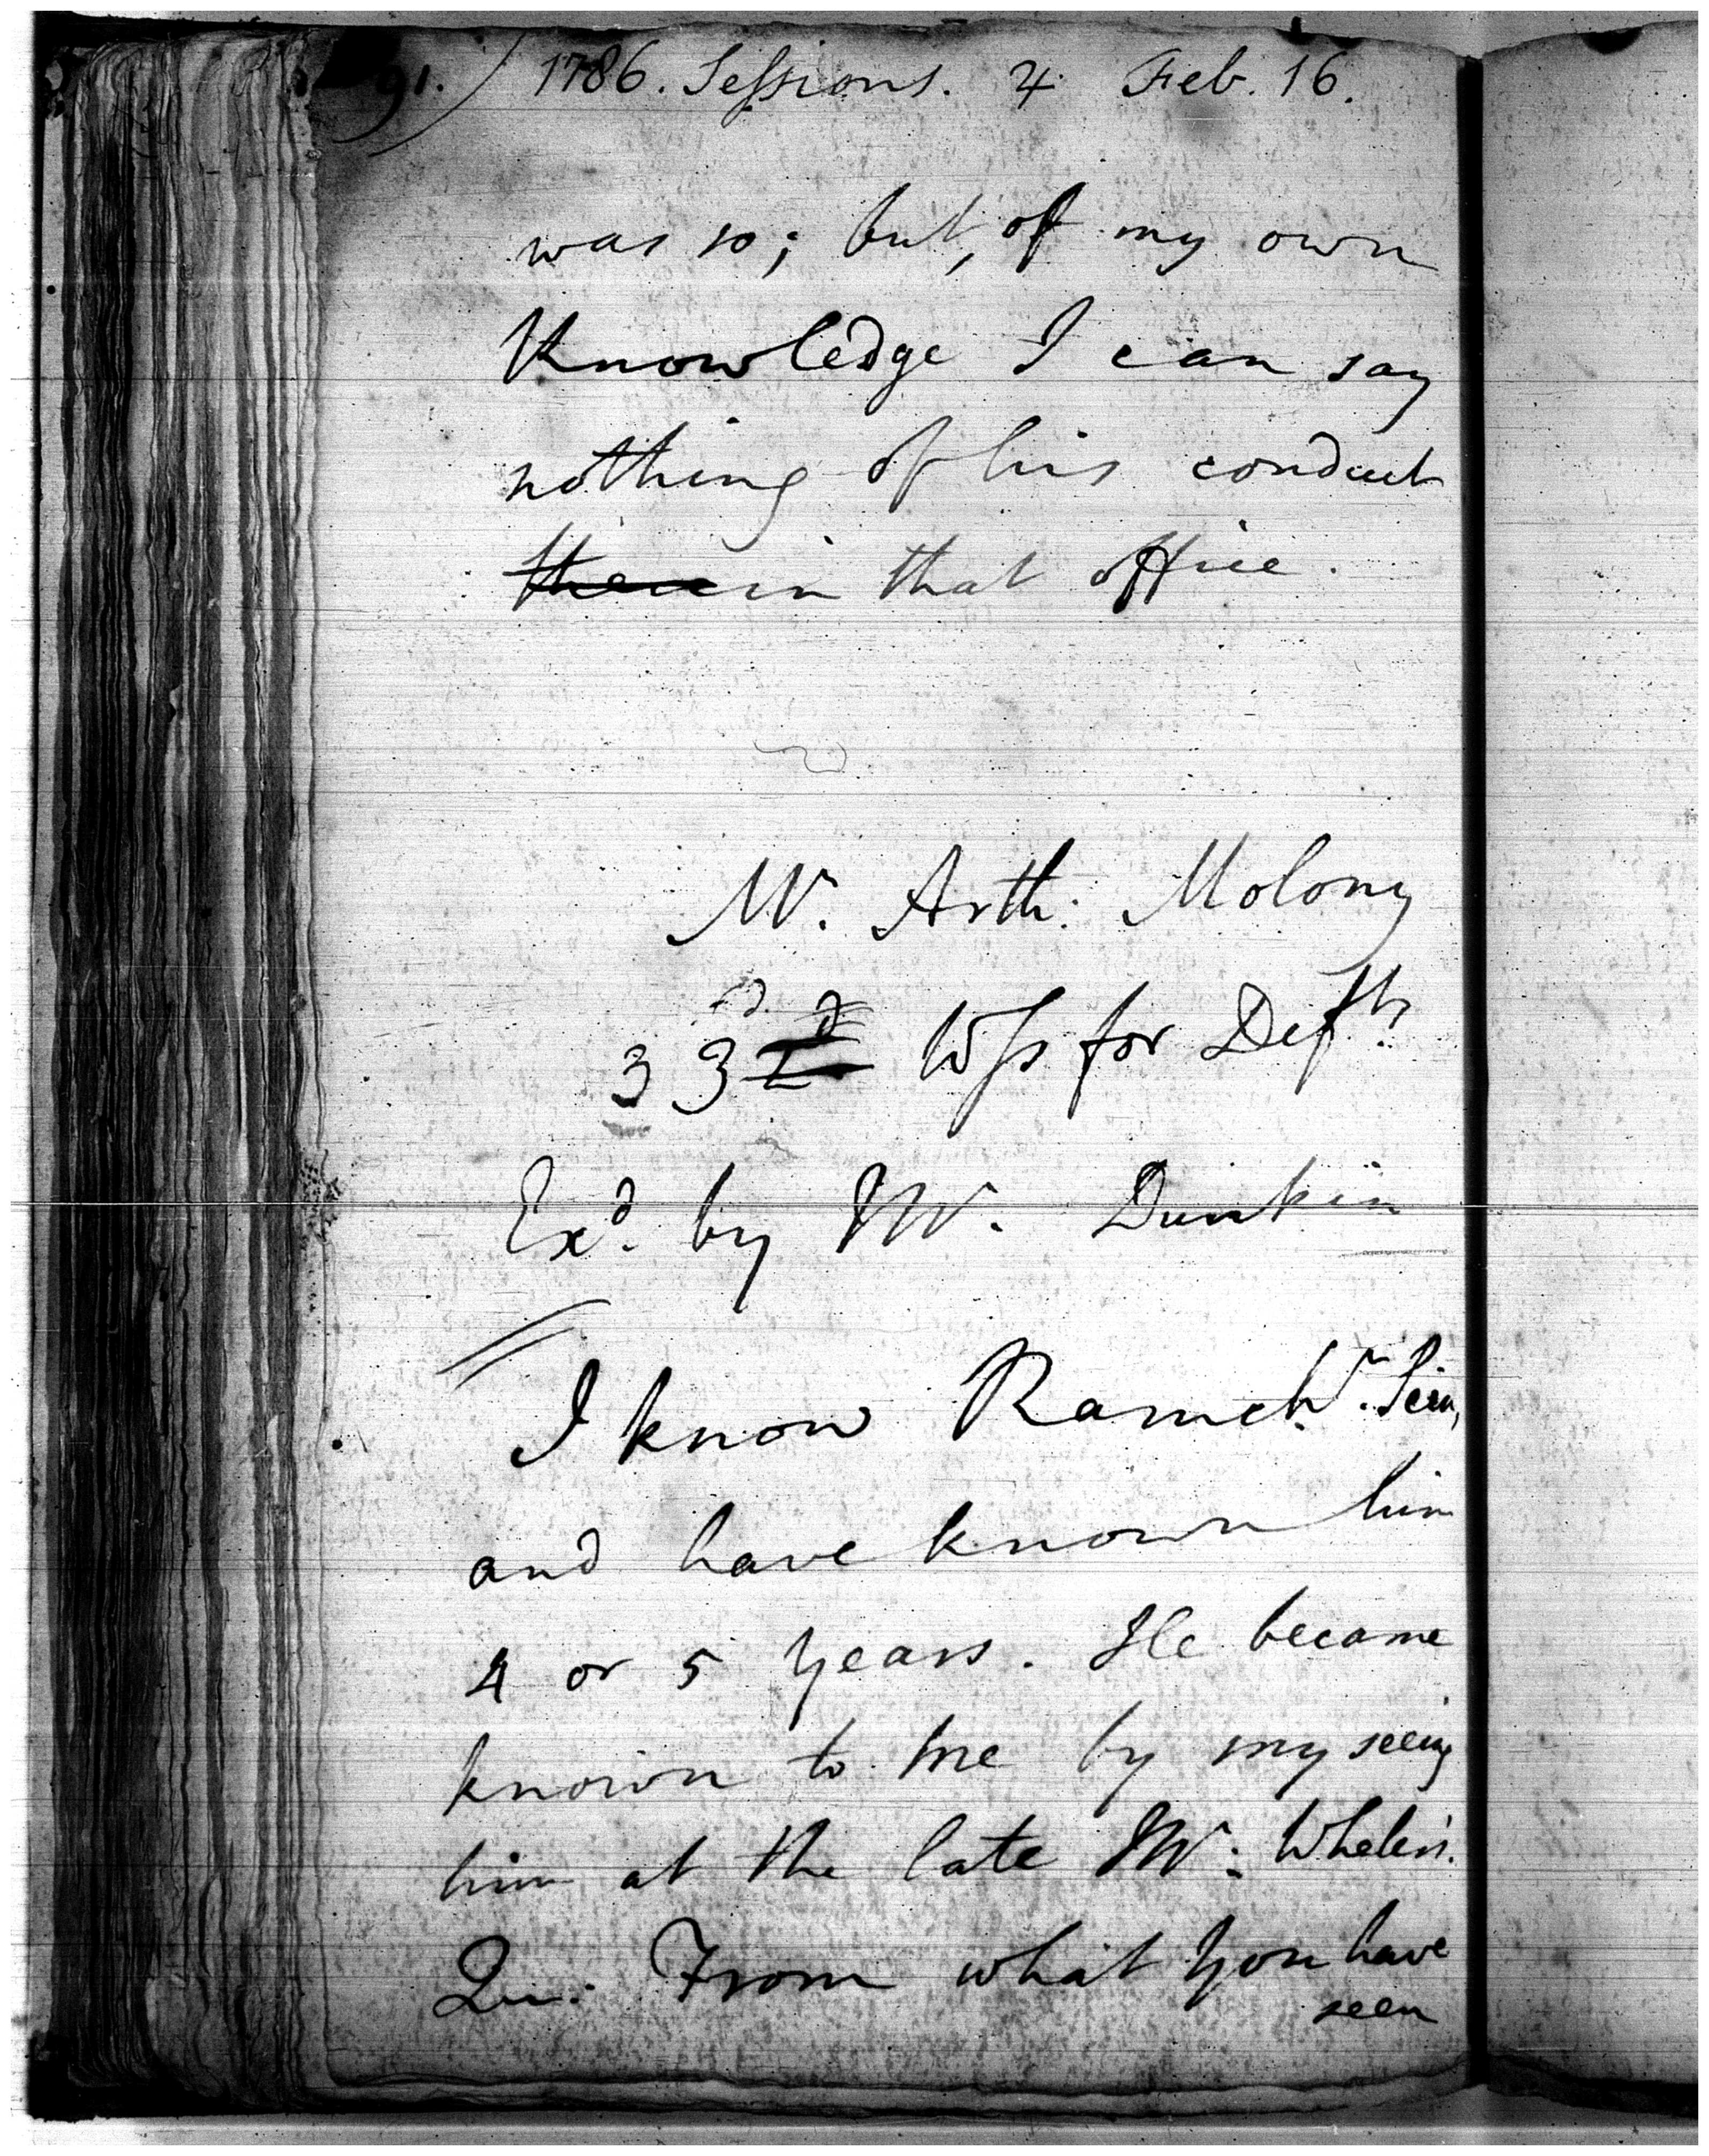 91.) 1786. Sessions. 4 Feb. 16.
was so; but, of my own
Knowledge I can say
nothing of his conduct
therein that office.
Mr. Arth. Molony
3 3d. 2d Wss for Defts.
Exd. by Mr. Dunkin
I know Ramchr. Sein,
and have known him
4 or 5 years. He became
known to me by my seeing
him at the late Mr. Whelen's.
Qu. From what you have
seen